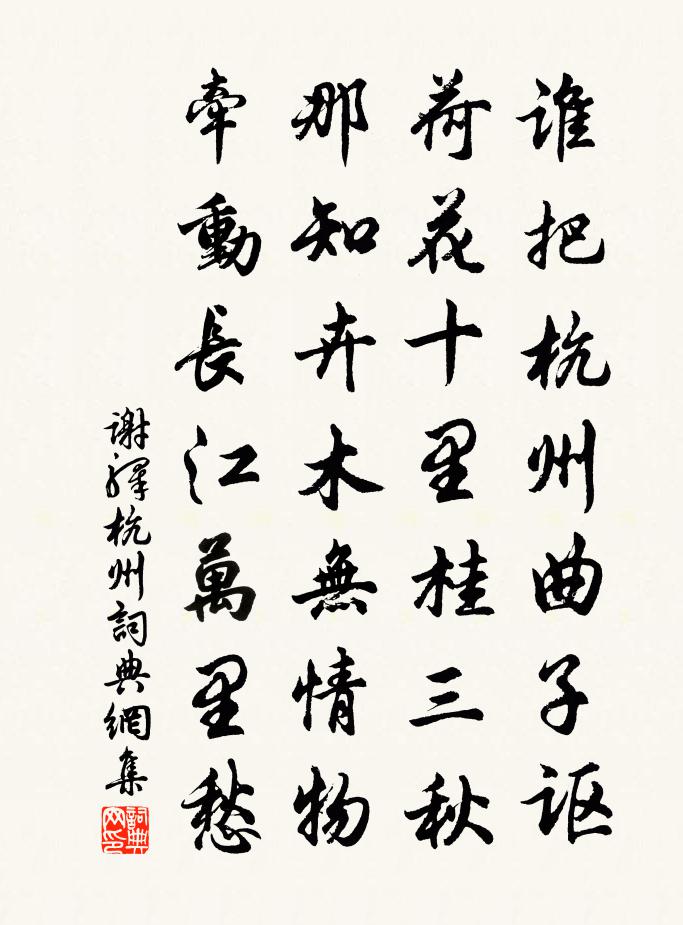 谁把杭州曲子讴
荷花十里桂三秋
那知卉木無情物
牽動長江萬里愁
谢驛杭州詞典網集
詞典网印